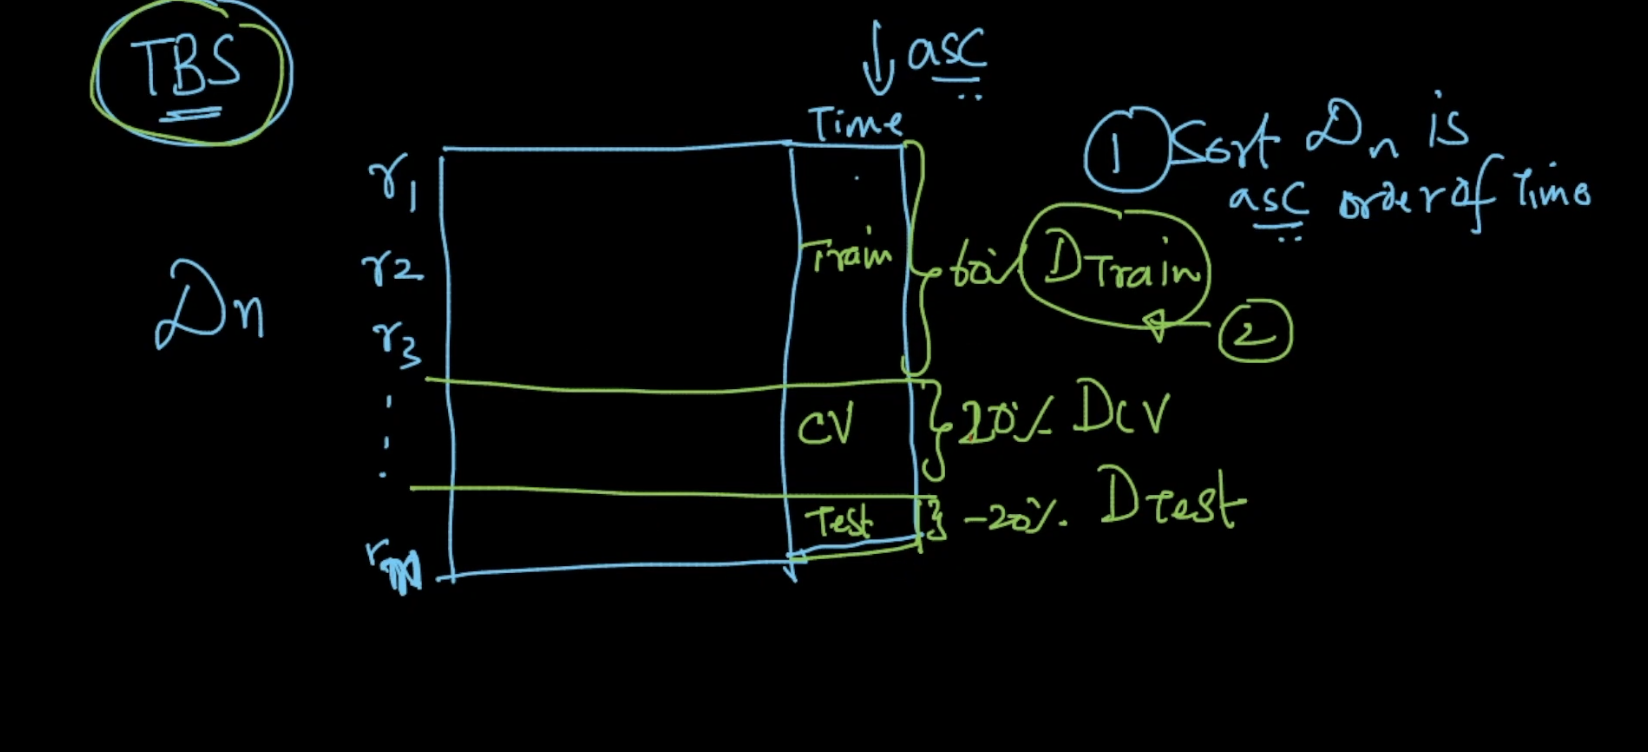 TBS
↓ asc
Time
① Sort Dn is
asc order of Time
r1
r2
r3
Dn
Train
60% DTrain
②
CV
20% DCV
Test
-20%. DTest
rn